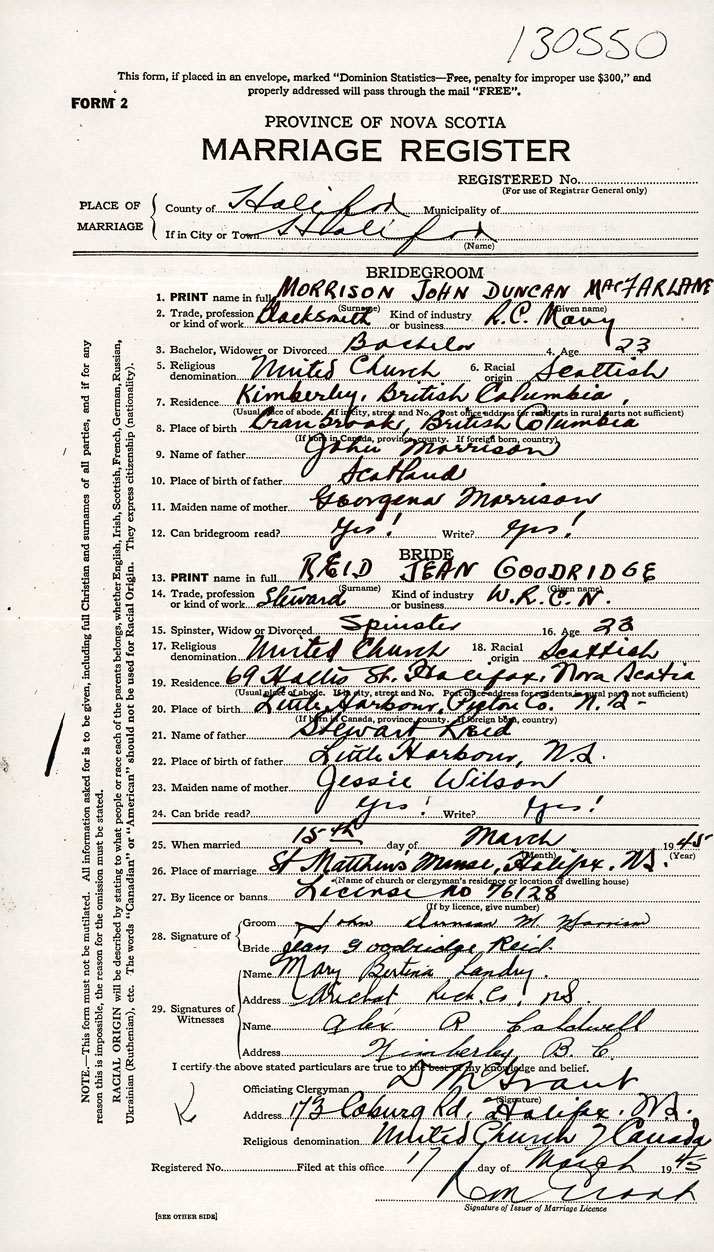 130550
This form, if placed in an envelope, marked “Dominion Statistics—Free, penalty for improper use $300,” and
properly addressed will pass through the mail “FREE”.
FORM 2
PROVINCE OF NOVA SCOTIA
MARRIAGE REGISTER
REGISTERED No.
(For use of Registrar General only)
PLACE OF MARRIAGE
County of Halifax Municipality of
If in City or Town Halifax
(Name)
BRIDEGROOM
1. PRINT name in full MORRISON JOHN DUNCAN MACFARLANE
(Surname) (Given name)
2. Trade, profession or kind of work Blacksmith Kind of industry or business R.C. Navy
3. Bachelor, Widower or Divorced Bachelor 4. Age 23
5. Religious denomination United Church 6. Racial origin Scottish
7. Residence Kimberley, British Columbia,
(Usual place of abode. If in city, street and No. Post office address for residents in rural parts not sufficient)
8. Place of birth Cranbrook, British Columbia
(If born in Canada, province, county. If foreign born, country)
9. Name of father John Morrison
10. Place of birth of father Scotland
11. Maiden name of mother Georgena Morrison
12. Can bridegroom read? Yes! Write? Yes!
BRIDE
13. PRINT name in full REID JEAN GOODRIDGE
(Surname) (Given name)
14. Trade, profession or kind of work Steward Kind of industry or business W.R.C.N.
15. Spinster, Widow or Divorced Spinster 16. Age 23
17. Religious denomination United Church 18. Racial origin Scottish
19. Residence 69 Hollis St. Halifax, Nova Scotia
(Usual place of abode. If in city, street and No. Post office address for residents in rural parts not sufficient)
20. Place of birth Little Harbour, Pictou Co. N.S-
(If born in Canada, province, county. If foreign born, country)
21. Name of father Stewart Reid
22. Place of birth of father Little Harbour, N.S.
23. Maiden name of mother Jessie Wilson
24. Can bride read? Yes! Write? Yes!
25. When married 15th day of March 1945
(Month) (Year)
26. Place of marriage St Matthew's Manse, Halifax. N.S.
(Name of church or clergyman's residence or location of dwelling house)
27. By licence or banns License No 76128
(If by licence, give number)
28. Signature of
Groom John Duncan M Morrison
Bride Jean Goodridge Reid.
29. Signatures of Witnesses
Name Mary Bertina Landry.
Address Arichat Rich. Co., NS.
Name Alex R Caldwell
Address Kimberley, B.C.
I certify the above stated particulars are true to the best of my knowledge and belief.
Officiating Clergyman D M Grant
(Signature)
Address 173 Coburg Rd, Halifax. N.S.
Religious denomination United Church of Canada
Registered No. Filed at this office 17 day of March 1945
Signature of Issuer of Marriage Licence
[SEE OTHER SIDE]
NOTE.—This form must not be mutilated. All information asked for is to be given, including full Christian and surnames of all parties, and if for any
reason this is impossible, the reason for the omission must be stated.
RACIAL ORIGIN will be described by stating to what people or race each of the parents belongs, whether English, Irish, Scottish, French, German, Russian,
Ukrainian (Ruthenian), etc. The words “Canadian” or “American” should not be used for Racial Origin. They express citizenship (nationality).